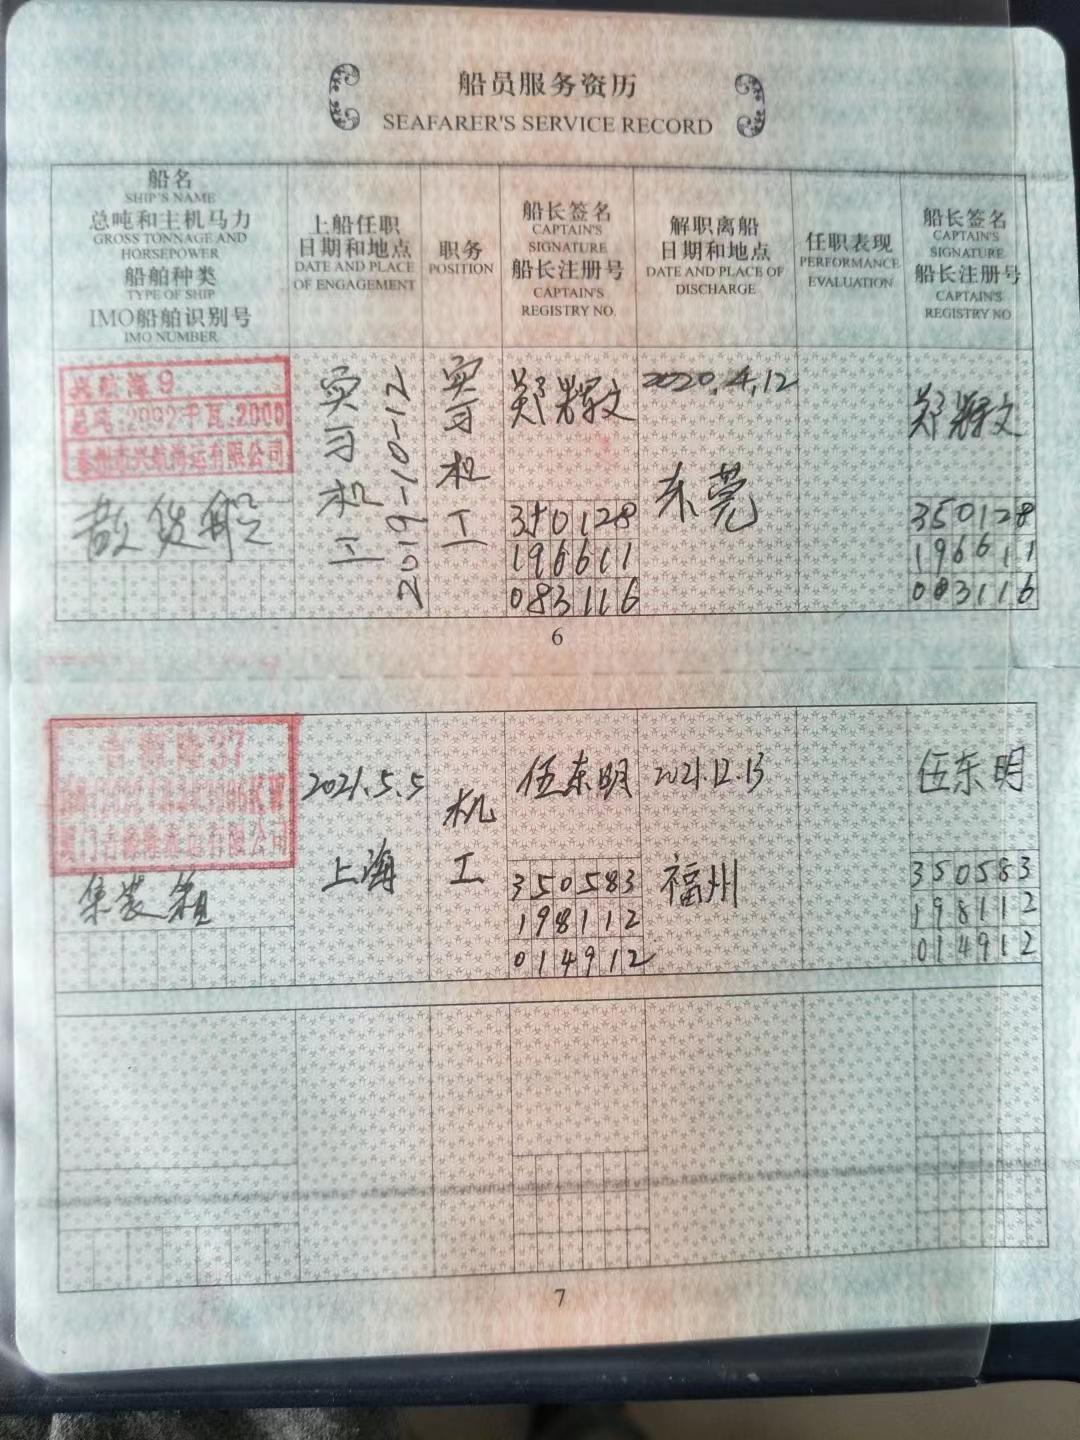 船员服务资历
SEAFARER'S SERVICE RECORD
船名
SHIP'S NAME
总吨和主机马力
GROSS TONNAGE AND
HORSEPOWER
船舶种类
TYPE OF SHIP
IMO船舶识别号
IMO NUMBER
上船任职
日期和地点
DATE AND PLACE
OF ENGAGEMENT
职务
POSITION
船长签名
CAPTAIN'S
SIGNATURE
船长注册号
CAPTAIN'S
REGISTRY NO.
解职离船
日期和地点
DATE AND PLACE OF
DISCHARGE
任职表现
PERFORMANCE
EVALUATION
船长签名
CAPTAIN'S
SIGNATURE
船长注册号
CAPTAIN'S
REGISTRY NO
兴航海9
总吨:2992千瓦:2000
泰州市兴航海运有限公司
散货船
实习机工
2019-10-12
实习机工
郑辉文
350128
196611
083116
2020.4.12
东莞
郑辉文
350128
196611
083116
6
吉德隆37
厦门吉德隆海运有限公司
集装箱
2021.5.5
上海
机工
伍东明
350583
198112
014912
2021.12.13
福州
伍东明
350583
198112
014912
7